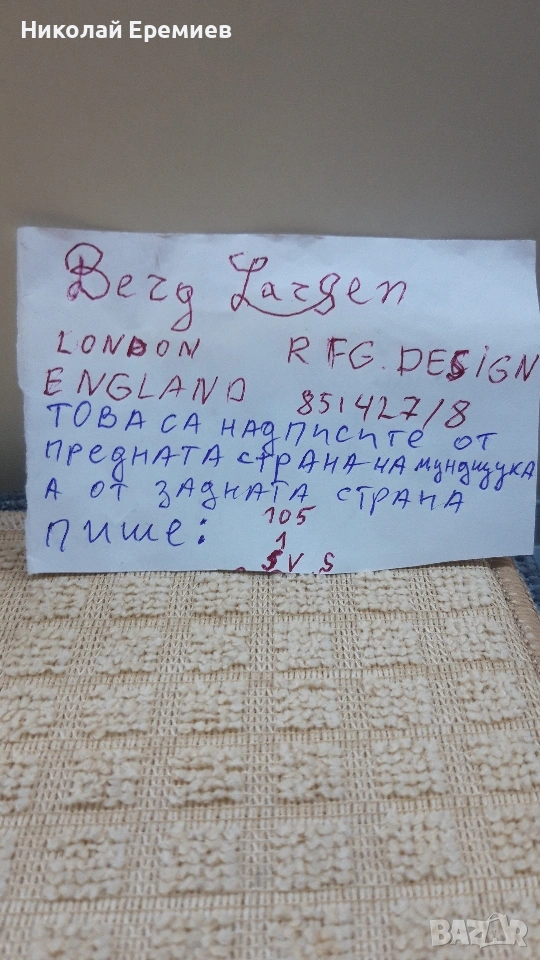 Николай Еремиев
Berg Larsen
LONDON R FG. DESIGN
ENGLAND 851427/8
ТОВА СА НАДПИСИТЕ ОТ
ПРЕДНАТА СТРАНА НА МУНДЩУКА
А ОТ ЗАДНАТА СТРАНА
ПИШЕ: 105
1
SVS
BAZAR